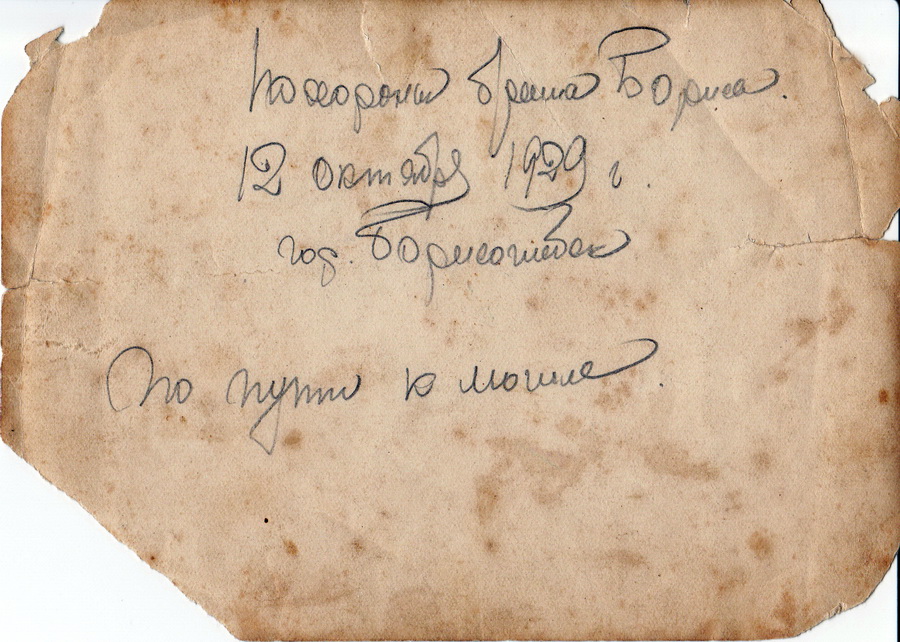 Похороны брата Бориса.
12 октября 1929 г.
гор. Борисоглебск
По пути к могиле.